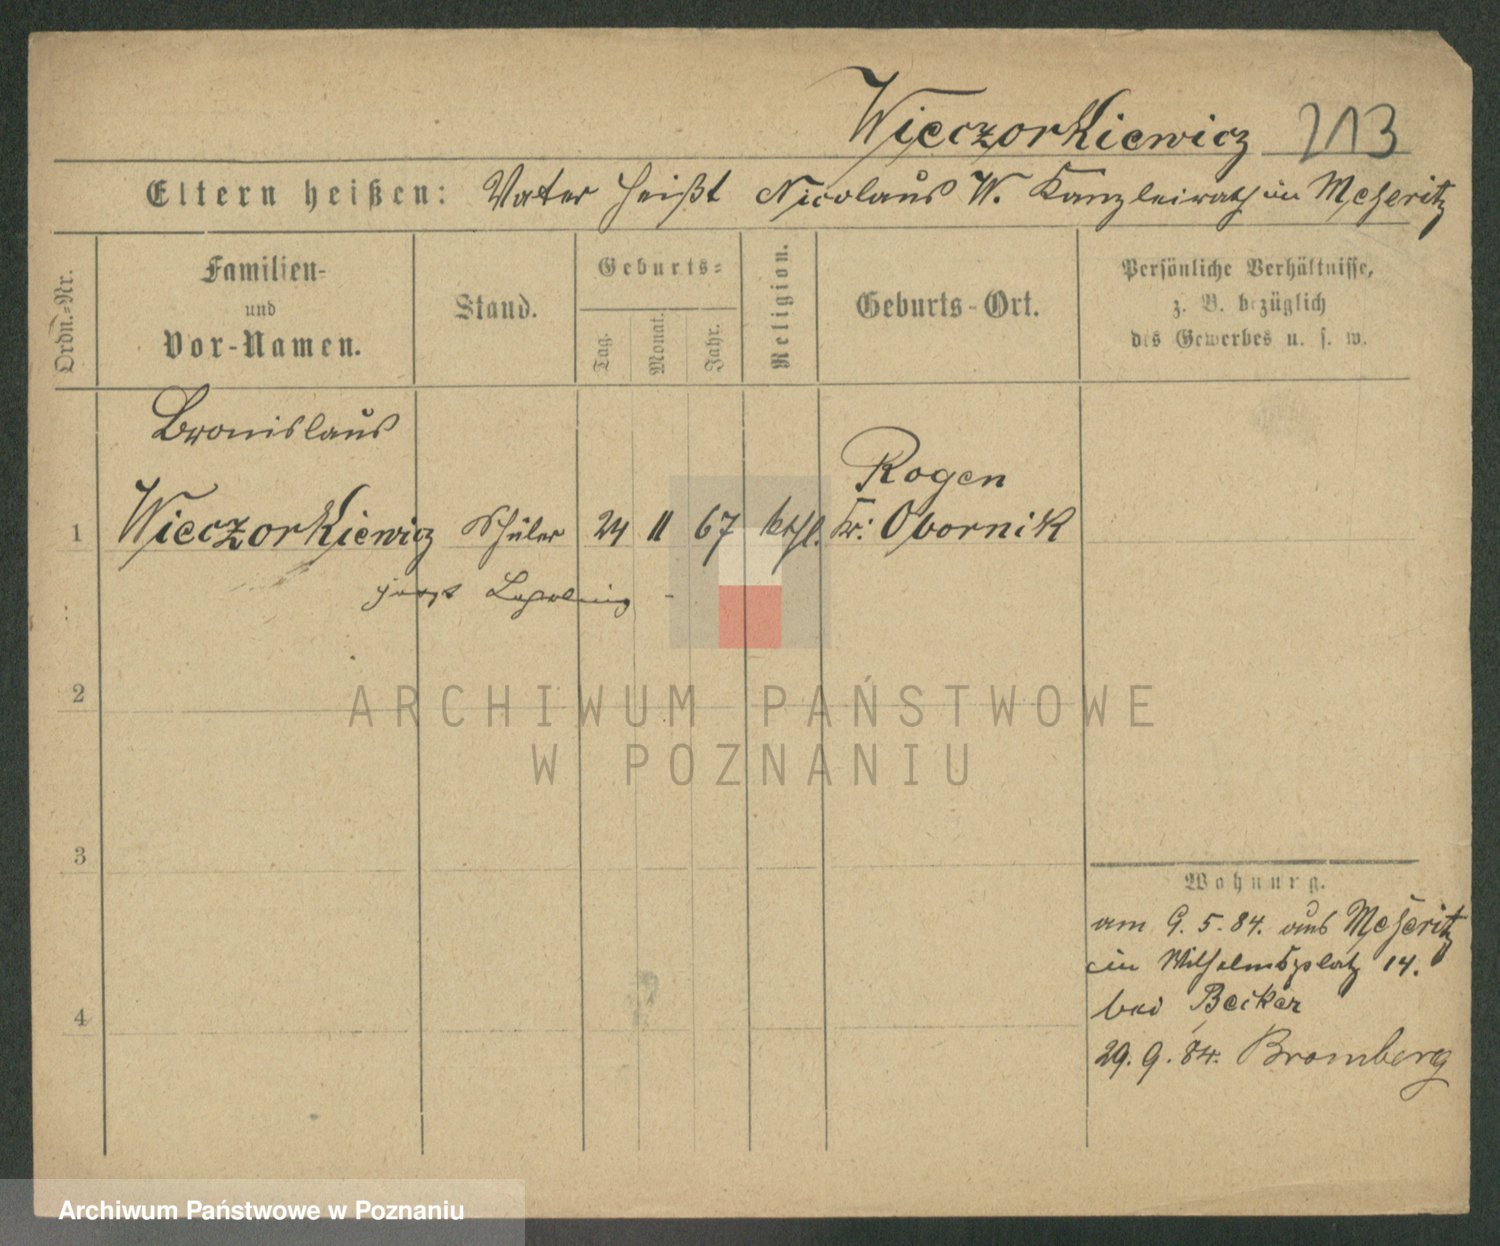 Wieczorkiewicz 213
Eltern heißen: Vater heißt Nicolaus W. Kanzleirath in Meseritz
Ordn.-Nr.
Familien-
und
Vor-Namen.
Stand.
Geburts-
Tag.
Monat.
Jahr.
Religion.
Geburts-Ort.
Persönliche Verhältnisse,
z. B. bezüglich
des Gewerbes u. s. w.
Bronislaus
1 Wieczorkiewicz Schüler 24 11 67 kthl. Rogen
Kr: Obornik
jetzt Lehrling
2
3
4
Wohnung.
am 9. 5. 84. aus Meseritz
in Wilhelmsplatz 14.
bei Becker
29. 9. 84. Bromberg
ARCHIWUM PAŃSTWOWE
W POZNANIU
Archiwum Państwowe w Poznaniu